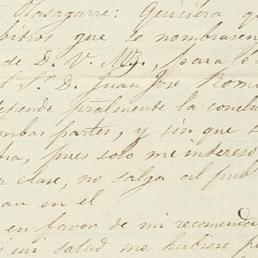 Olasagarre: Quisiera q
bitros que se nombrasen
de D. V. My, para
D. Juan José Rom
depende realmente la conclu
ambas partes, y sin que s
tra, pues solo me intereso
a clase, no salga al pub
an en el
en favor de mi recomenda
i mi salud me hubiese pe